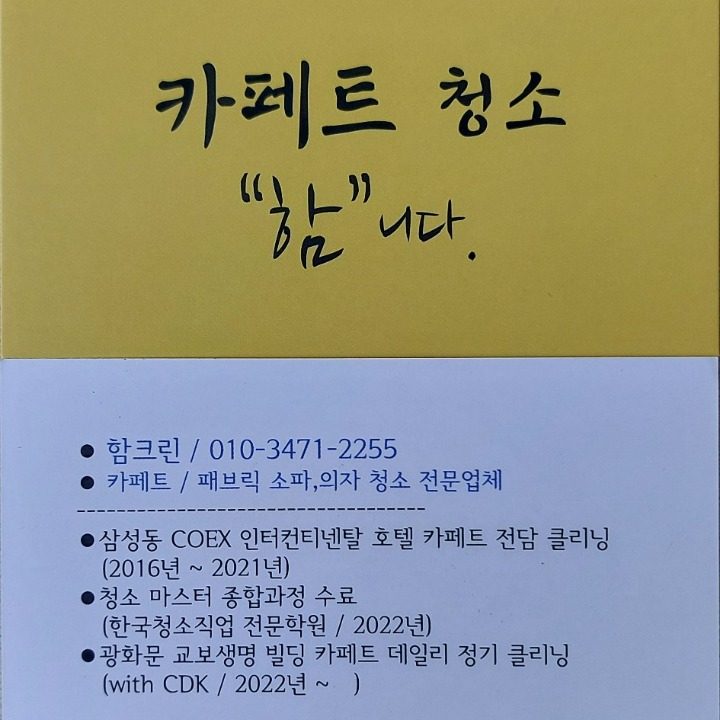 카페트 청소
“함”니다.
● 함크린 / 010-3471-2255
● 카페트 / 패브릭 소파,의자 청소 전문업체
-----------------------------------
●삼성동 COEX 인터컨티넨탈 호텔 카페트 전담 클리닝
(2016년 ~ 2021년)
●청소 마스터 종합과정 수료
(한국청소직업 전문학원 / 2022년)
●광화문 교보생명 빌딩 카페트 데일리 정기 클리닝
(with CDK / 2022년 ~ )